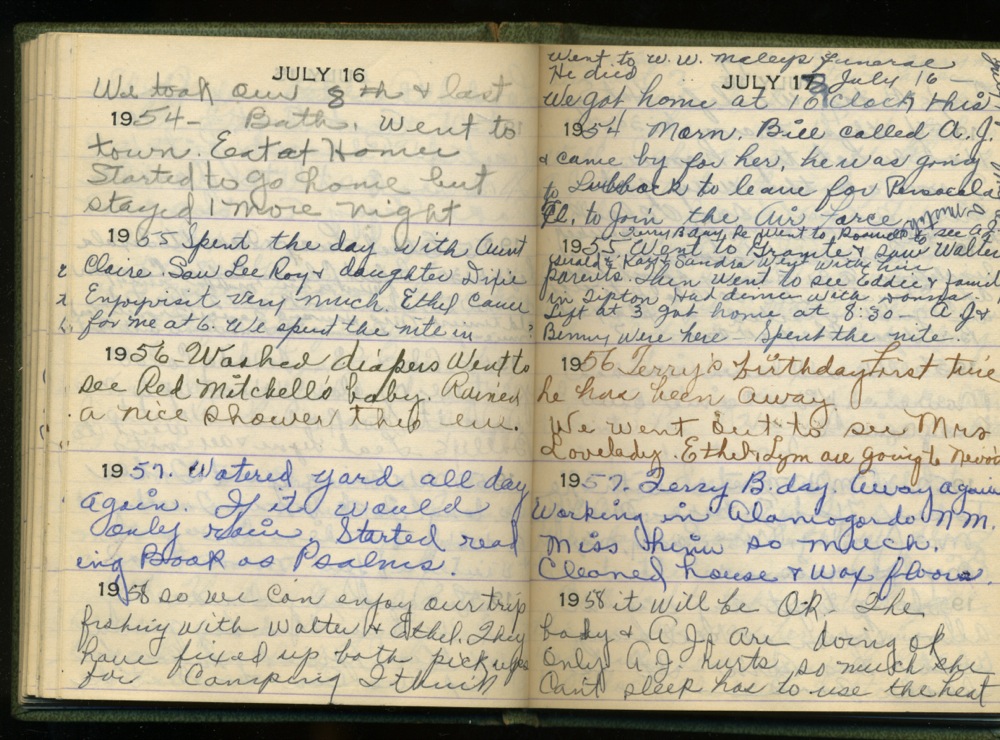 JULY 16
We took our 8th & last
1954- Bath. Went to
town. Eat at Homer
Started to go home but
stayed 1 more night
1955 Spent the day with Aunt
Claire. Saw Lee Roy & daughter Dixie
Enjoy visit very much. Ethel came
for me at 6. We spent the nite in
1956- Washed diapers Went to
see Red Mitchell's baby. Rained
a nice shower this eve.
1957. Watered yard all day
again. If it would
only rain. Started read
ing Book as Psalms.
1958 so we can enjoy our trip
fishing with Walter & Ethel. They
have fixed up both pick ups
for Camping I think
Went to W. W. Maleys funeral
He died July 16 -
JULY 17
We got home at 10 clock this
1954 Morn. Bill called A. J.
& came by for her, he was going
to Lubbock to leave for Pensacola
Fl. to Join the Air Force
Terry Bary Re went to to see A J
1955 Went to Granite & saw Walter
& Kay & Sandra Way with her
parents. Then went to see Eddie & famil
in Tipton Had dinner with
Left at 3 got home at 8:30 - A J &
Benny were here - Spent the nite.
1956 Terry's birthday first time
he has been away.
We went out to see Mrs
Lovelady. Ethel & Lym are going to
1957. Terry B. day. Away again
Working in Alamogordo N M.
Miss him so much.
Cleaned house & wax floors.
1958 it will be OK - The
baby & A J. are doing ok
only A J. hurts so much she
Can't sleep has to use the heat